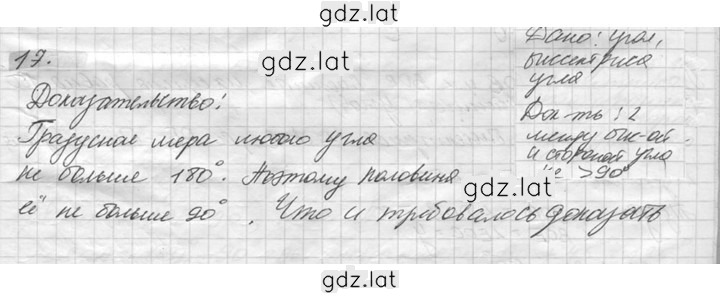 gdz.lat
17.
gdz.lat
Дано: угол,
биссектриса
угла
Док-ть: ∠
между бис-ой
и стороной угла
"≤" >90°
Доказательство:
Градусная мера любого угла
не больше 180°. Поэтому половина
её не больше 90°. Что и требовалось доказать
gdz.lat
gdz.lat